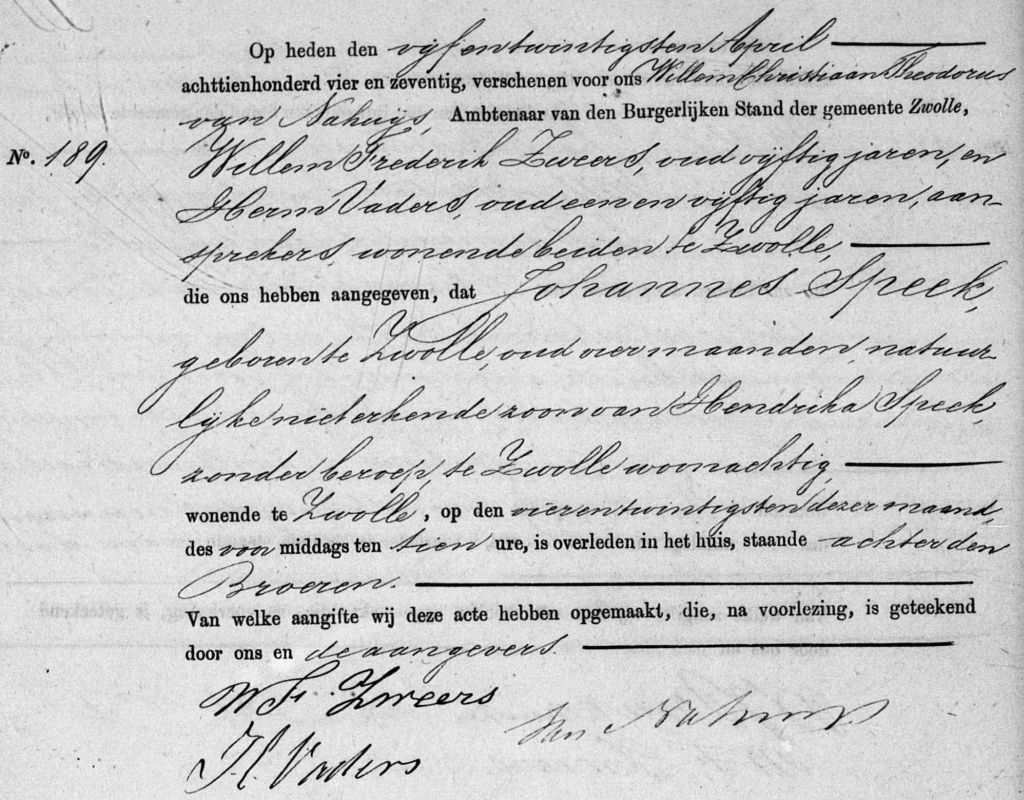 Op heden den vijfentwintigsten April
achttienhonderd vier en zeventig, verschenen voor ons Willem Christiaan Theodorus
van Nahuys, Ambtenaar van den Burgerlijken Stand der gemeente Zwolle,
No. 189. Willem Frederik Zweers, oud vijftig jaren, en
Harm Vaders, oud een en vijftig jaren, aan-
sprekers, wonende beiden te Zwolle,
die ons hebben aangegeven, dat Johannes Speek,
geboren te Zwolle, oud vier maanden natuur-
lijke niet erkende zoon van Hendrika Speek,
zonder beroep, te Zwolle woonachtig,
wonende te Zwolle, op den vierentwintigsten dezer maand,
des voor middags ten tien ure, is overleden in het huis, staande achter den
Broeren.
Van welke aangifte wij deze acte hebben opgemaakt, die, na voorlezing, is geteekend
door ons en de aangevers.
W F Zweers
Van Nahuys
H Vaders